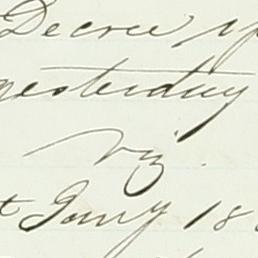 Decree
yesterday
viz.
Jany 18